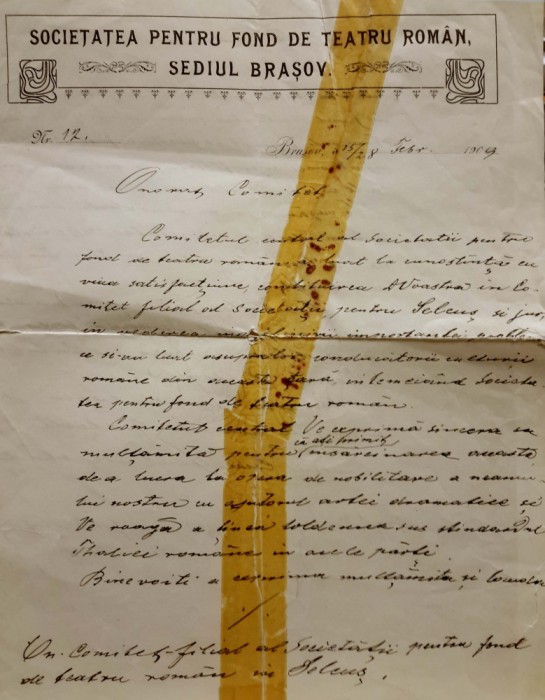 SOCIETATEA PENTRU FOND DE TEATRU ROMÂN,
SEDIUL BRAȘOV.
Nr. 12.
Brașov, 15/28 Febr. 1909
Onorat Comitet,
Comitetul central al Societății pentru
fond de teatru român a luat la cunoștință cu
viuă satisfacțiune, constituirea DVoastră în Co-
mitet filial al societății pentru Seleuș și jur,
în vederea importantei
ce și-au luat asupra-lor conducătorii culturii
române din această țară, întemeiând Societa-
tea pentru fond de teatru român.
Comitetul central Ve exprimă sincera sa
mulțămită pentru că ați primit însărcinarea aceasta
de a lucra la opera de nobilitare a neamu-
lui nostru cu ajutorul artei dramatice și
Ve roagă a ținea totdeuna sus standardul
Thaliei române în acele părți.
Binevoiți a exprima mulțămita și
./.
On. Comitet filial al Societății pentru fond
de teatru român în Seleuș.